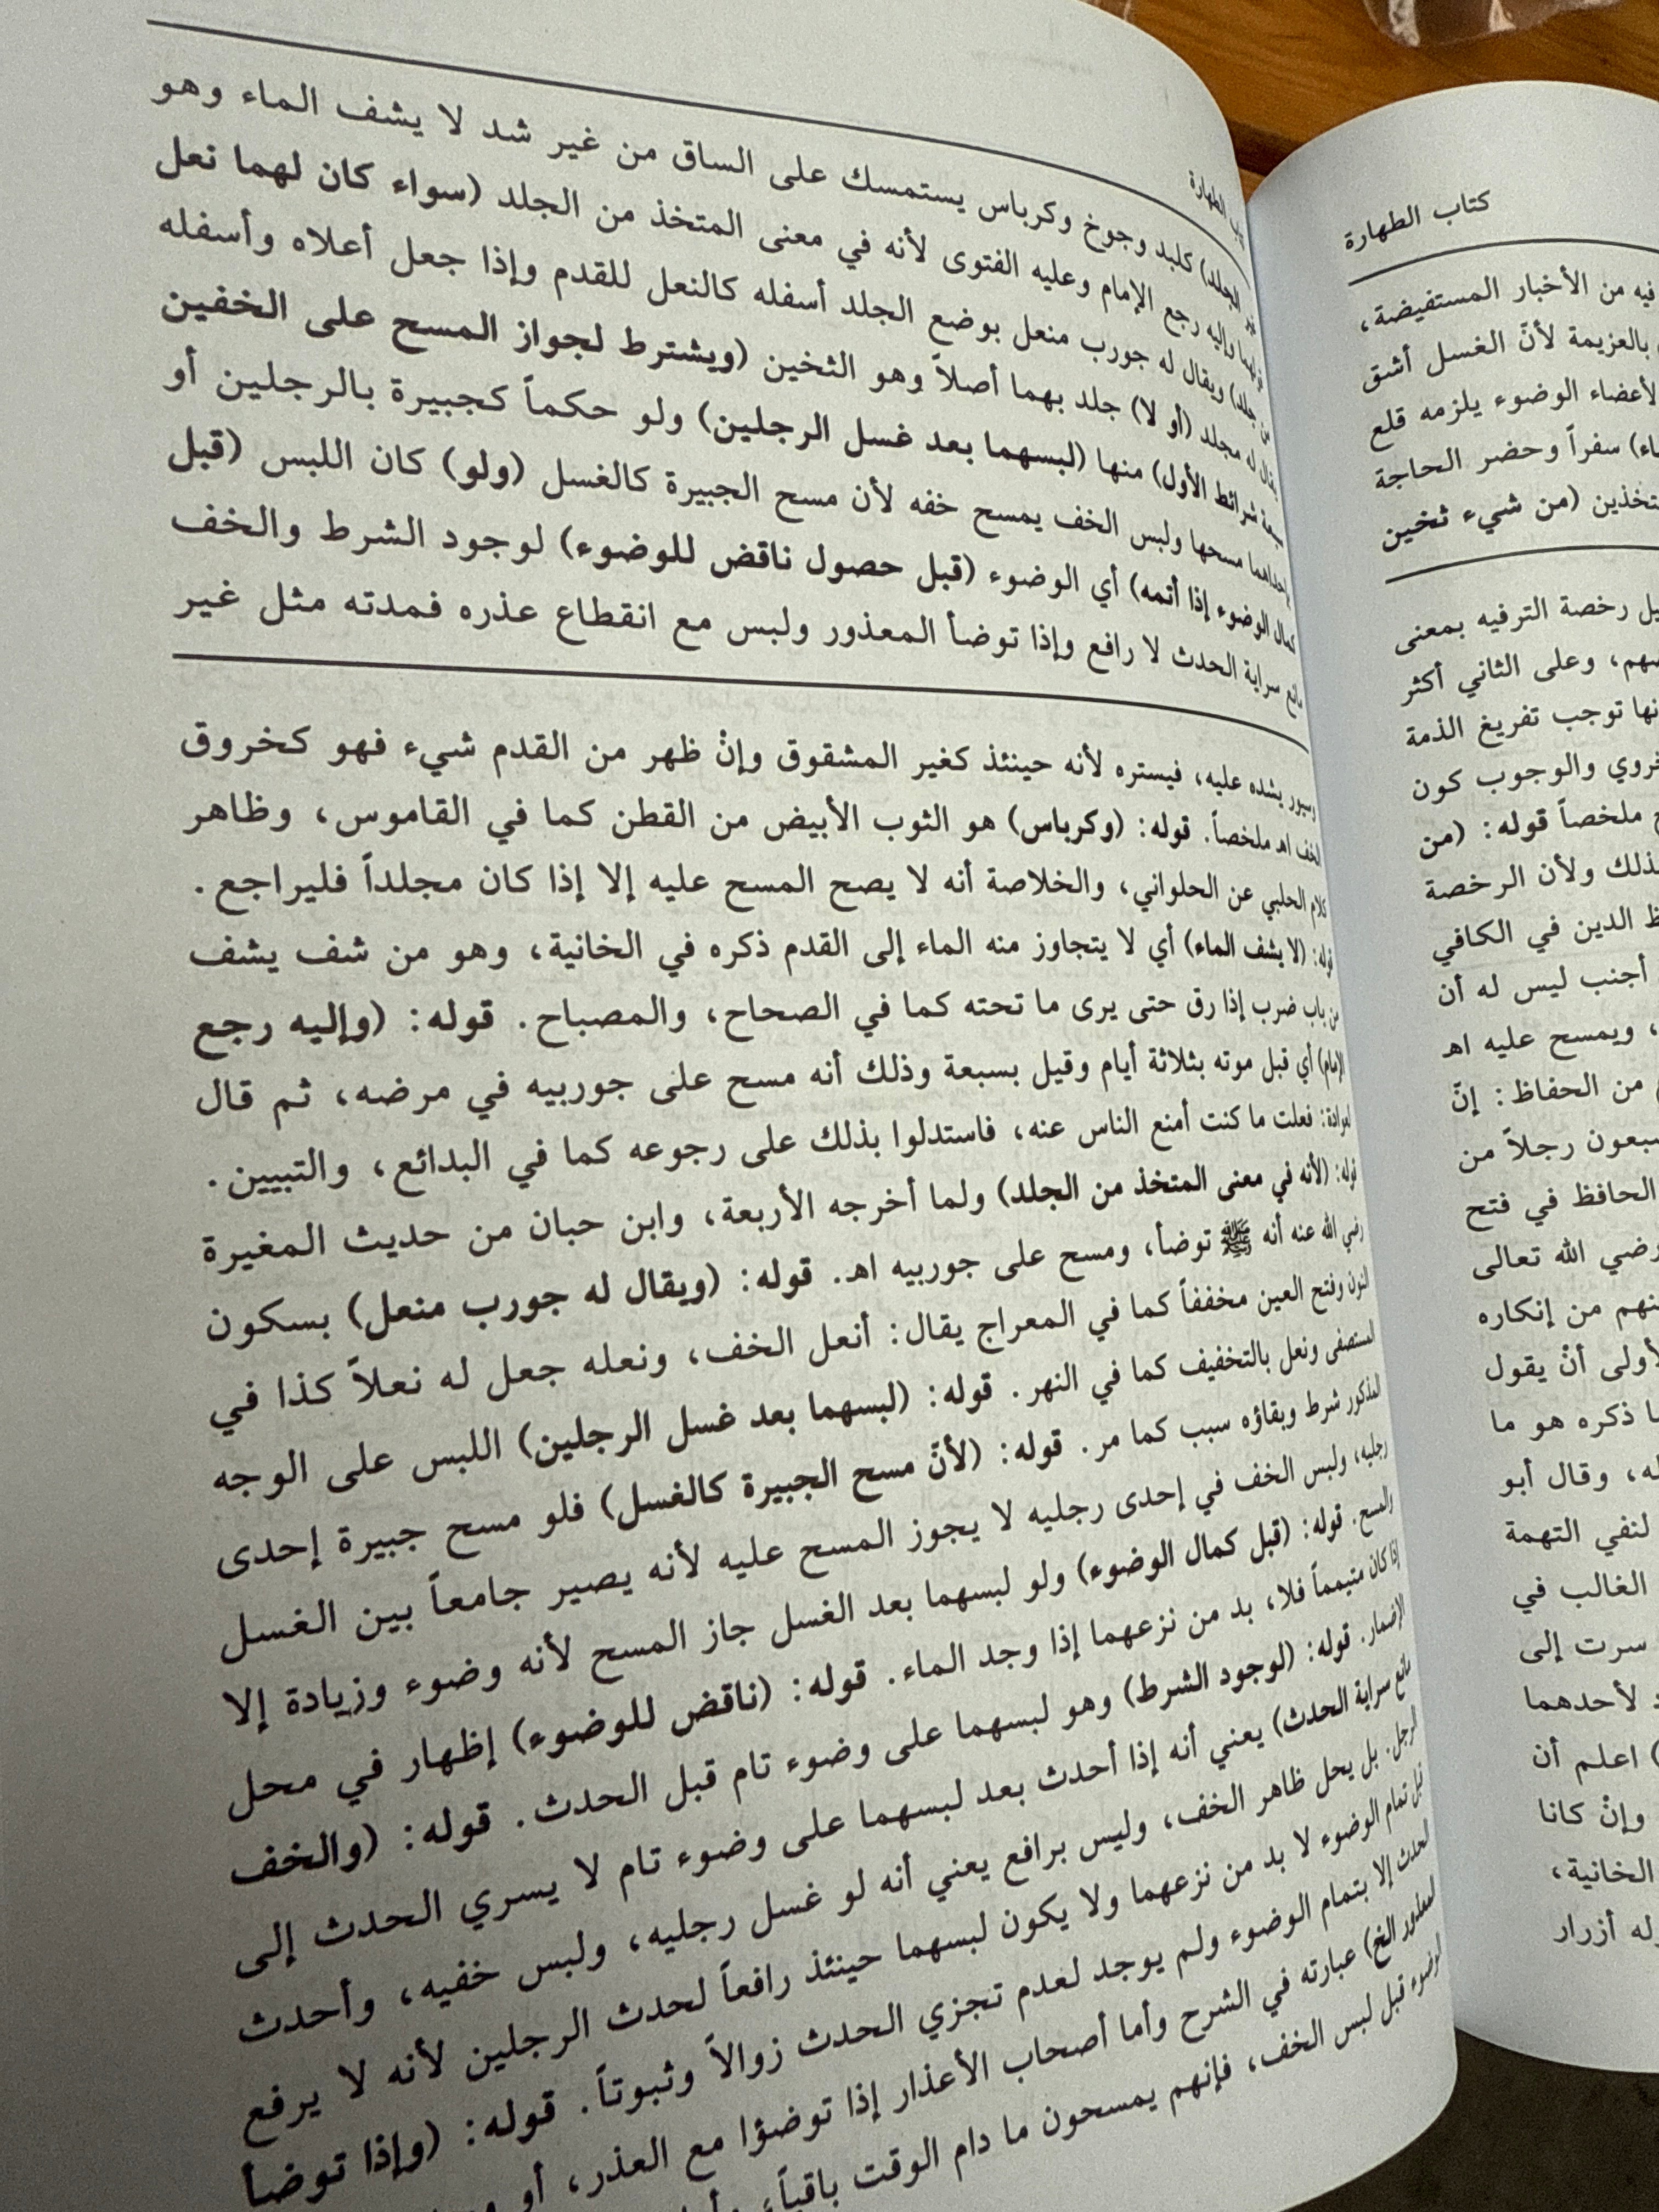 كتاب الطهارة
فيه من الأخبار المستفيضة،
بالعزيمة لأنّ الغسل أشق
لأعضاء الوضوء يلزمه قلع
سفراً وحضر الحاجة
(من شيء ثخين
رخصة الترفيه بمعنى
وعلى الثاني أكثر
توجب تفريغ الذمة
والوجوب كون
ملخصاً قوله: (من
ولأن الرخصة
الدين في الكافي
أجنب ليس له أن
، ويمسح عليه اهـ
من الحفاظ: إنّ
رجلاً من
الحافظ في فتح
رضي الله تعالى
من إنكاره
أنْ يقول
ذكره هو ما
، وقال أبو
لنفي التهمة
الغالب في
سرت إلى
لأحدهما
) اعلم أن
وإنْ كانا
الخانية،
أزرار
الطهارة
الجلد) كلبد وجوخ وكرباس يستمسك على الساق من غير شد لا يشف الماء وهو
وإليه رجع الإمام وعليه الفتوى لأنه في معنى المتخذ من الجلد (سواء كان لهما نعل
من جلد) ويقال له جورب منعل بوضع الجلد أسفله كالنعل للقدم وإذا جعل أعلاه وأسفله
يقال له مجلد (أو لا) جلد بهما أصلاً وهو الثخين (ويشترط لجواز المسح على الخفين
سبعة شرائط الأول) منها (لبسهما بعد غسل الرجلين) ولو حكماً كجبيرة بالرجلين أو
بإحداهما مسحها ولبس الخف يمسح خفه لأن مسح الجبيرة كالغسل (ولو) كان اللبس (قبل
كمال الوضوء إذا أتمه) أي الوضوء (قبل حصول ناقض للوضوء) لوجود الشرط والخف
مانع سراية الحدث لا رافع وإذا توضأ المعذور ولبس مع انقطاع عذره فمدته مثل غير
وسيور يشده عليه، فيستره لأنه حينئذ كغير المشقوق وإنْ ظهر من القدم شيء فهو كخروق
الخف اهـ ملخصاً. قوله: (وكرباس) هو الثوب الأبيض من القطن كما في القاموس، وظاهر
كلام الحلبي عن الحلواني، والخلاصة أنه لا يصح المسح عليه إلا إذا كان مجلداً فليراجع.
قوله: (لا يشف الماء) أي لا يتجاوز منه الماء إلى القدم ذكره في الخانية، وهو من شف يشف
من باب ضرب إذا رق حتى يرى ما تحته كما في الصحاح، والمصباح. قوله: (وإليه رجع
الإمام) أي قبل موته بثلاثة أيام وقيل بسبعة وذلك أنه مسح على جوربيه في مرضه، ثم قال
لعوادة: فعلت ما كنت أمنع الناس عنه، فاستدلوا بذلك على رجوعه كما في البدائع، والتبيين.
قوله: (لأنه في معنى المتخذ من الجلد) ولما أخرجه الأربعة، وابن حبان من حديث المغيرة
رضي الله عنه أنه ﷺ توضأ، ومسح على جوربيه اهـ. قوله: (ويقال له جورب منعل) بسكون
النون وفتح العين مخففاً كما في المعراج يقال: أنعل الخف، ونعله جعل له نعلاً كذا في
المستصفى ونعل بالتخفيف كما في النهر. قوله: (لبسهما بعد غسل الرجلين) اللبس على الوجه
المذكور شرط وبقاؤه سبب كما مر. قوله: (لأنّ مسح الجبيرة كالغسل) فلو مسح جبيرة إحدى
رجليه، ولبس الخف في إحدى رجليه لا يجوز المسح عليه لأنه يصير جامعاً بين الغسل
والمسح. قوله: (قبل كمال الوضوء) ولو لبسهما بعد الغسل جاز المسح لأنه وضوء وزيادة إلا
إذا كان متيمماً فلا، بد من نزعهما إذا وجد الماء. قوله: (ناقض للوضوء) إظهار في محل
الإضمار. قوله: (لوجود الشرط) وهو لبسهما على وضوء تام قبل الحدث. قوله: (والخف
مانع سراية الحدث) يعني أنه إذا أحدث بعد لبسهما على وضوء تام لا يسري الحدث إلى
الرجل. بل يحل ظاهر الخف، وليس برافع يعني أنه لو غسل رجليه، ولبس خفيه، وأحدث
قبل تمام الوضوء لا بد من نزعهما ولا يكون لبسهما حينئذ رافعاً لحدث الرجلين لأنه لا يرفع
الحدث إلا بتمام الوضوء ولم يوجد لعدم تجزي الحدث زوالاً وثبوتاً. قوله: (وإذا توضأ
المعذور الخ) عبارته في الشرح وأما أصحاب الأعذار إذا توضؤا مع العذر، أو
الوضوء قبل لبس الخف، فإنهم يمسحون ما دام الوقت باقياً،